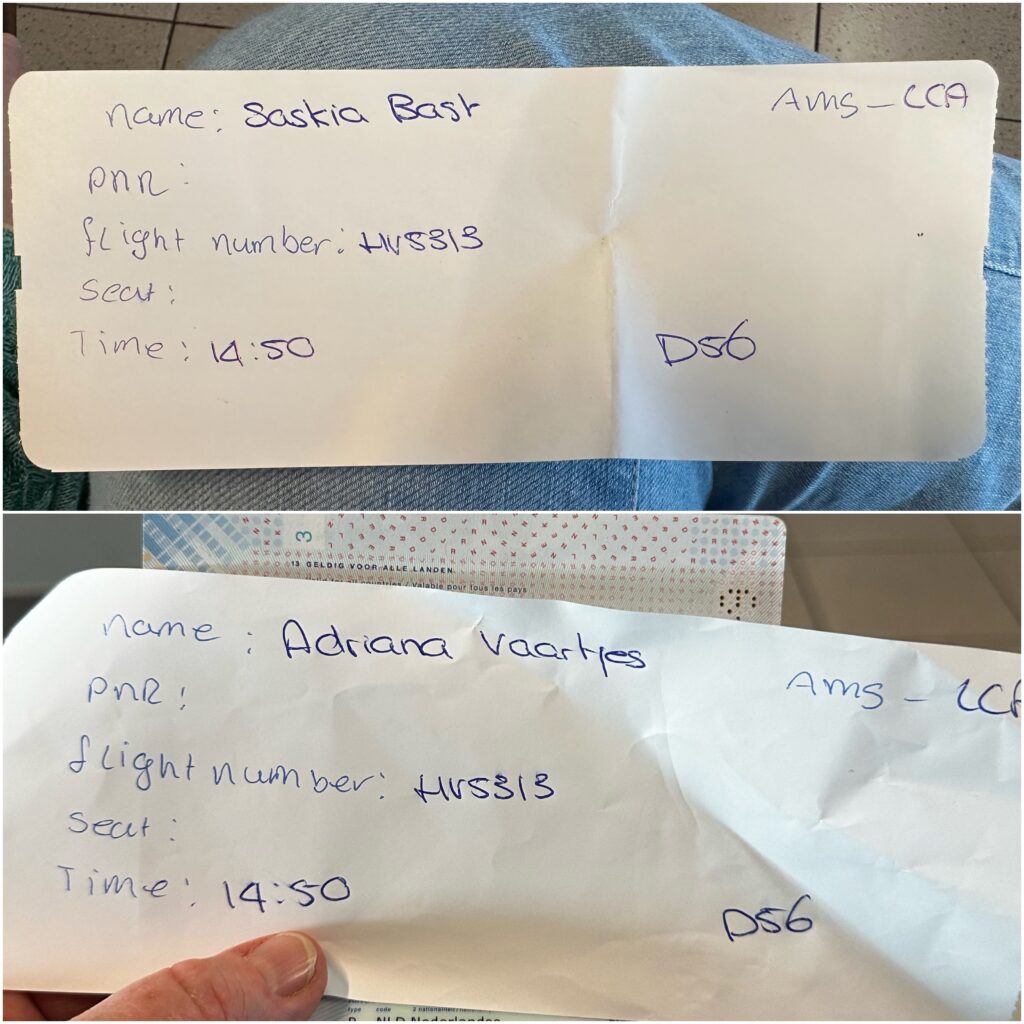 name: Saskia Bast
Ams - LCA
pnr:
flight number: HV5313
Seat:
Time: 14:50
D56
3
13 GELDIG VOOR ALLE LANDEN
/ Valable pour tous les pays
name : Adriana Vaartjes
Ams - LCA
pnr:
flight number: HV5313
Seat:
Time: 14:50
D56
type code
P NLD Nederlandse